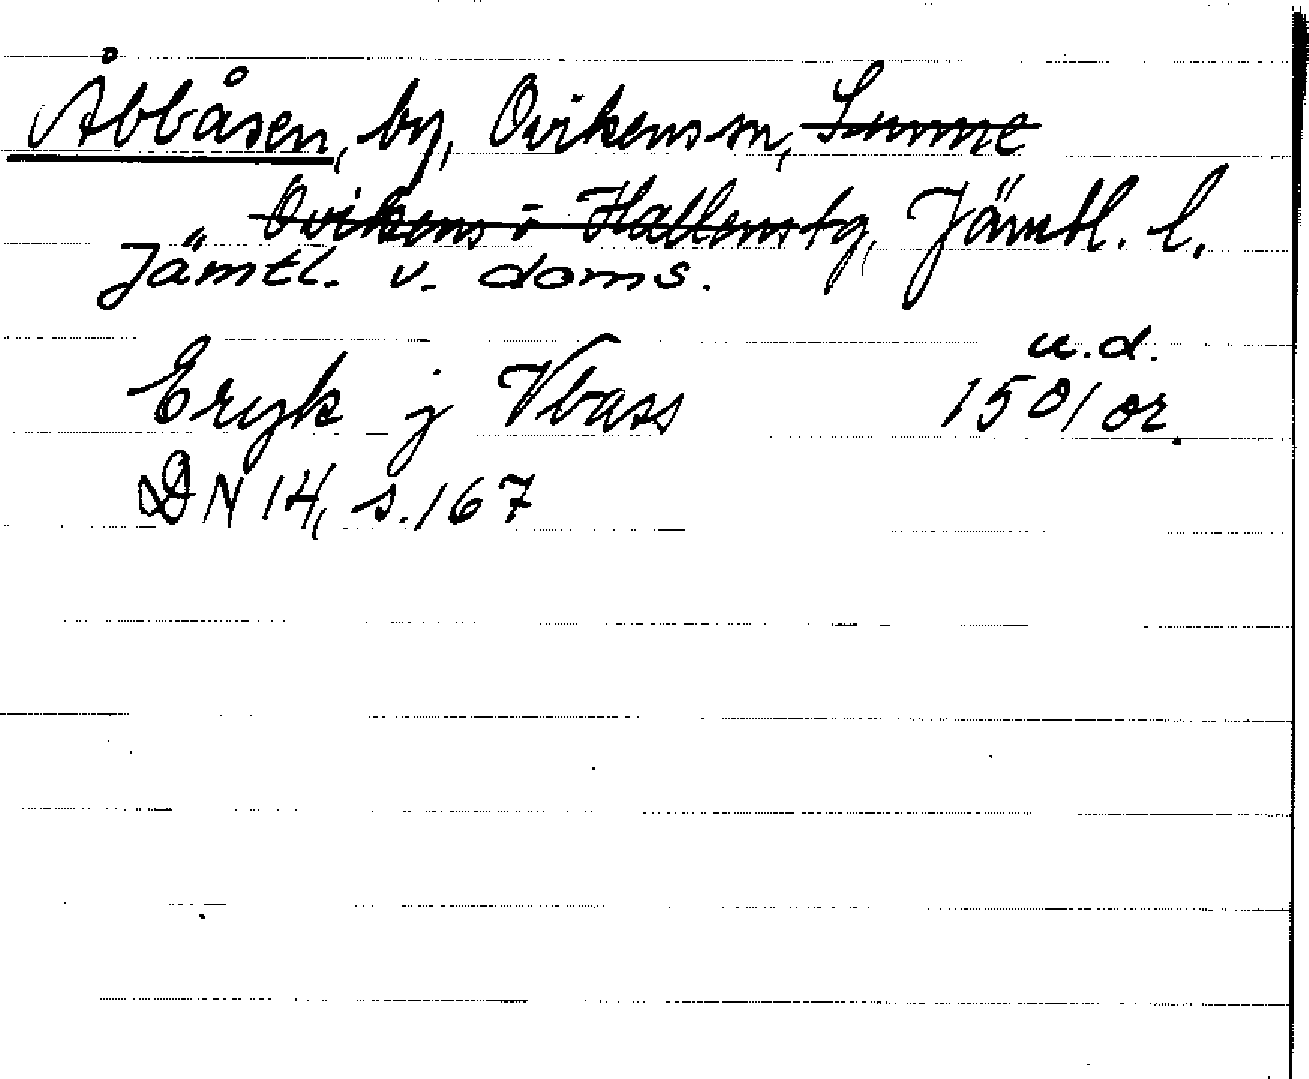 Åbbåsen, by, Ovikens sn, Sunne
Ovikens o Hallens tg, Jämtl. l.
Jämtl. v. doms.
u.d.
Eryk j Vbass 1501 or.
DN 14, s. 167